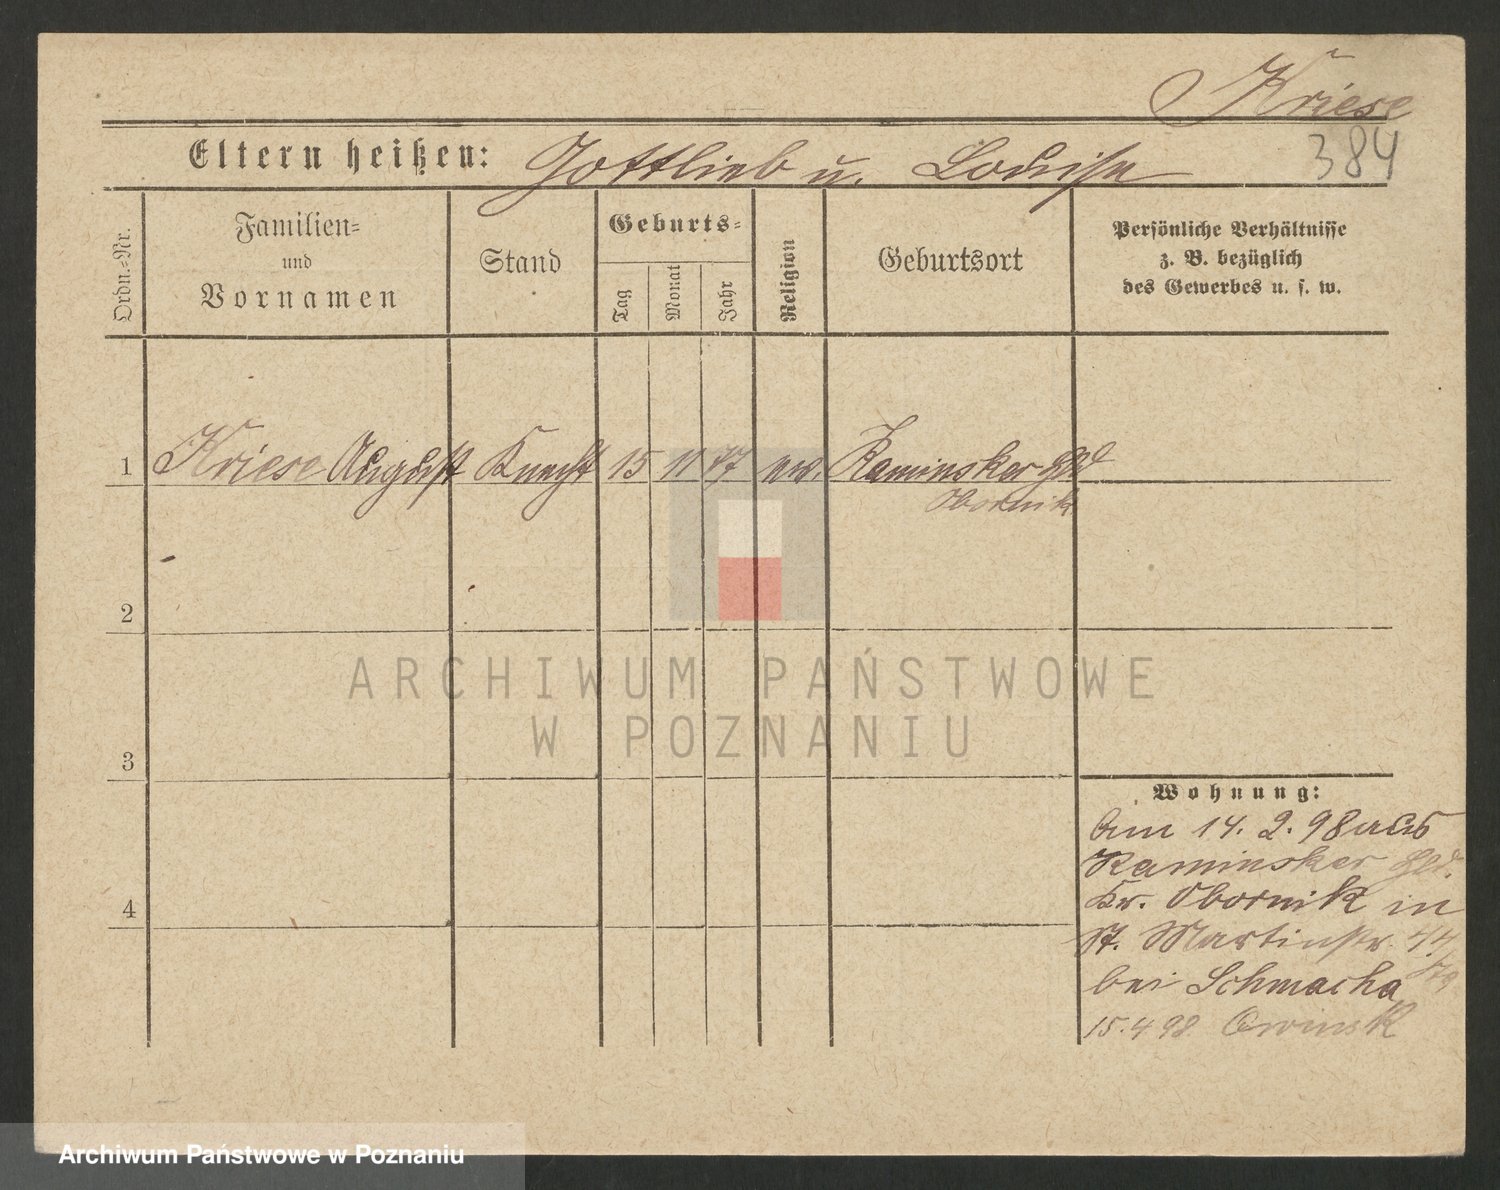 Kriese
384
Eltern heißen: Gottlieb u. Louise
Ordn.-Nr.
Familien-
und
Vornamen
Stand
Geburts-
Tag
Monat
Jahr
Religion
Geburtsort
Persönliche Verhältnisse
z. B. bezüglich
des Gewerbes u. s. w.
1 Kriese August Knecht 15 11 77 ev. Kaminsker Hld
Obornik
2
3
4
Wohnung:
Am 14. 2. 98 aus
Kaminsker Hld.
Kr. Obornik in
St. Martinstr. 44
bei Schmacha
15.4 98 Owinsk
ARCHIWUM PAŃSTWOWE
W POZNANIU
Archiwum Państwowe w Poznaniu